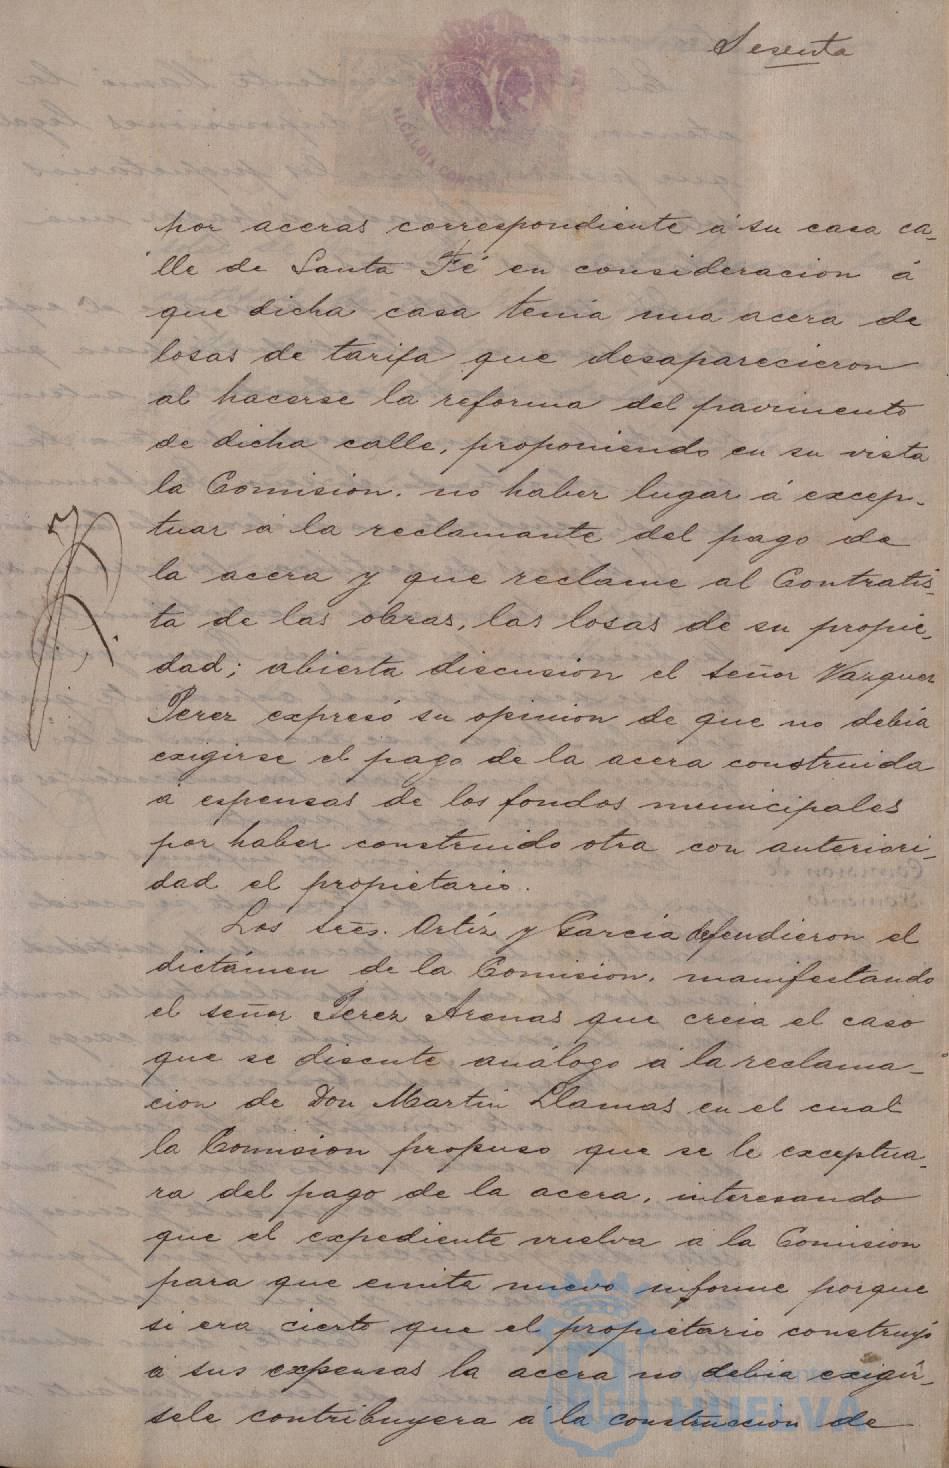 Sesenta
ALCALDIA CON
por aceras correspondiente á su casa ca-
lle de Santa Fé en consideracion á
que dicha casa tenia una acera de
losas de tarifa que desaparecieron
al hacerse la reforma del pavimento
de dicha calle, proponiendo en su vista
la Comision. no haber lugar á excep-
tuar á la reclamante del pago de
la acera y que reclame al Contratis-
ta de las obras, las losas de su propie-
dad; abierta discusion el señor Vazquez
Perez expresó su opinion de que no debia
exigirse el pago de la acera construida
á espensas de los fondos municipales
por haber construido otra con anteriori-
dad el propietario.
Los Sres. Ortíz y García defendieron el
dictámen de la Comision, manifestando
el señor Perez Arenas que creia el caso
que se discute análogo á la reclama-
cion de Don Martin Llamas en el cual
la Comision propuso que se le exceptua-
ra del pago de la acera, interesando
que el expediente vuelva á la Comision
para que emita nuevo informe porque
si era cierto que el propietario construyó
á sus expensas la acera no debia exigír-
sele contribuyera á la construccion de
Ayuntamiento
HUELVA